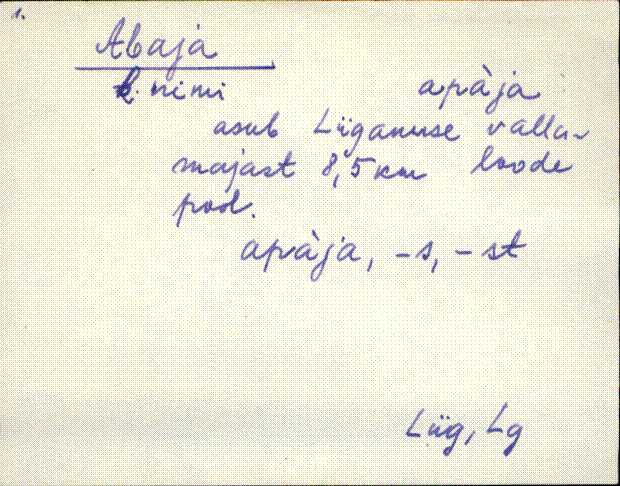 1.
Abaja
k. nimi apàja
asub Lüganuse valla-
majast 8,5 km loode
pool.
apàja, -s, -st
Lüg, Lg